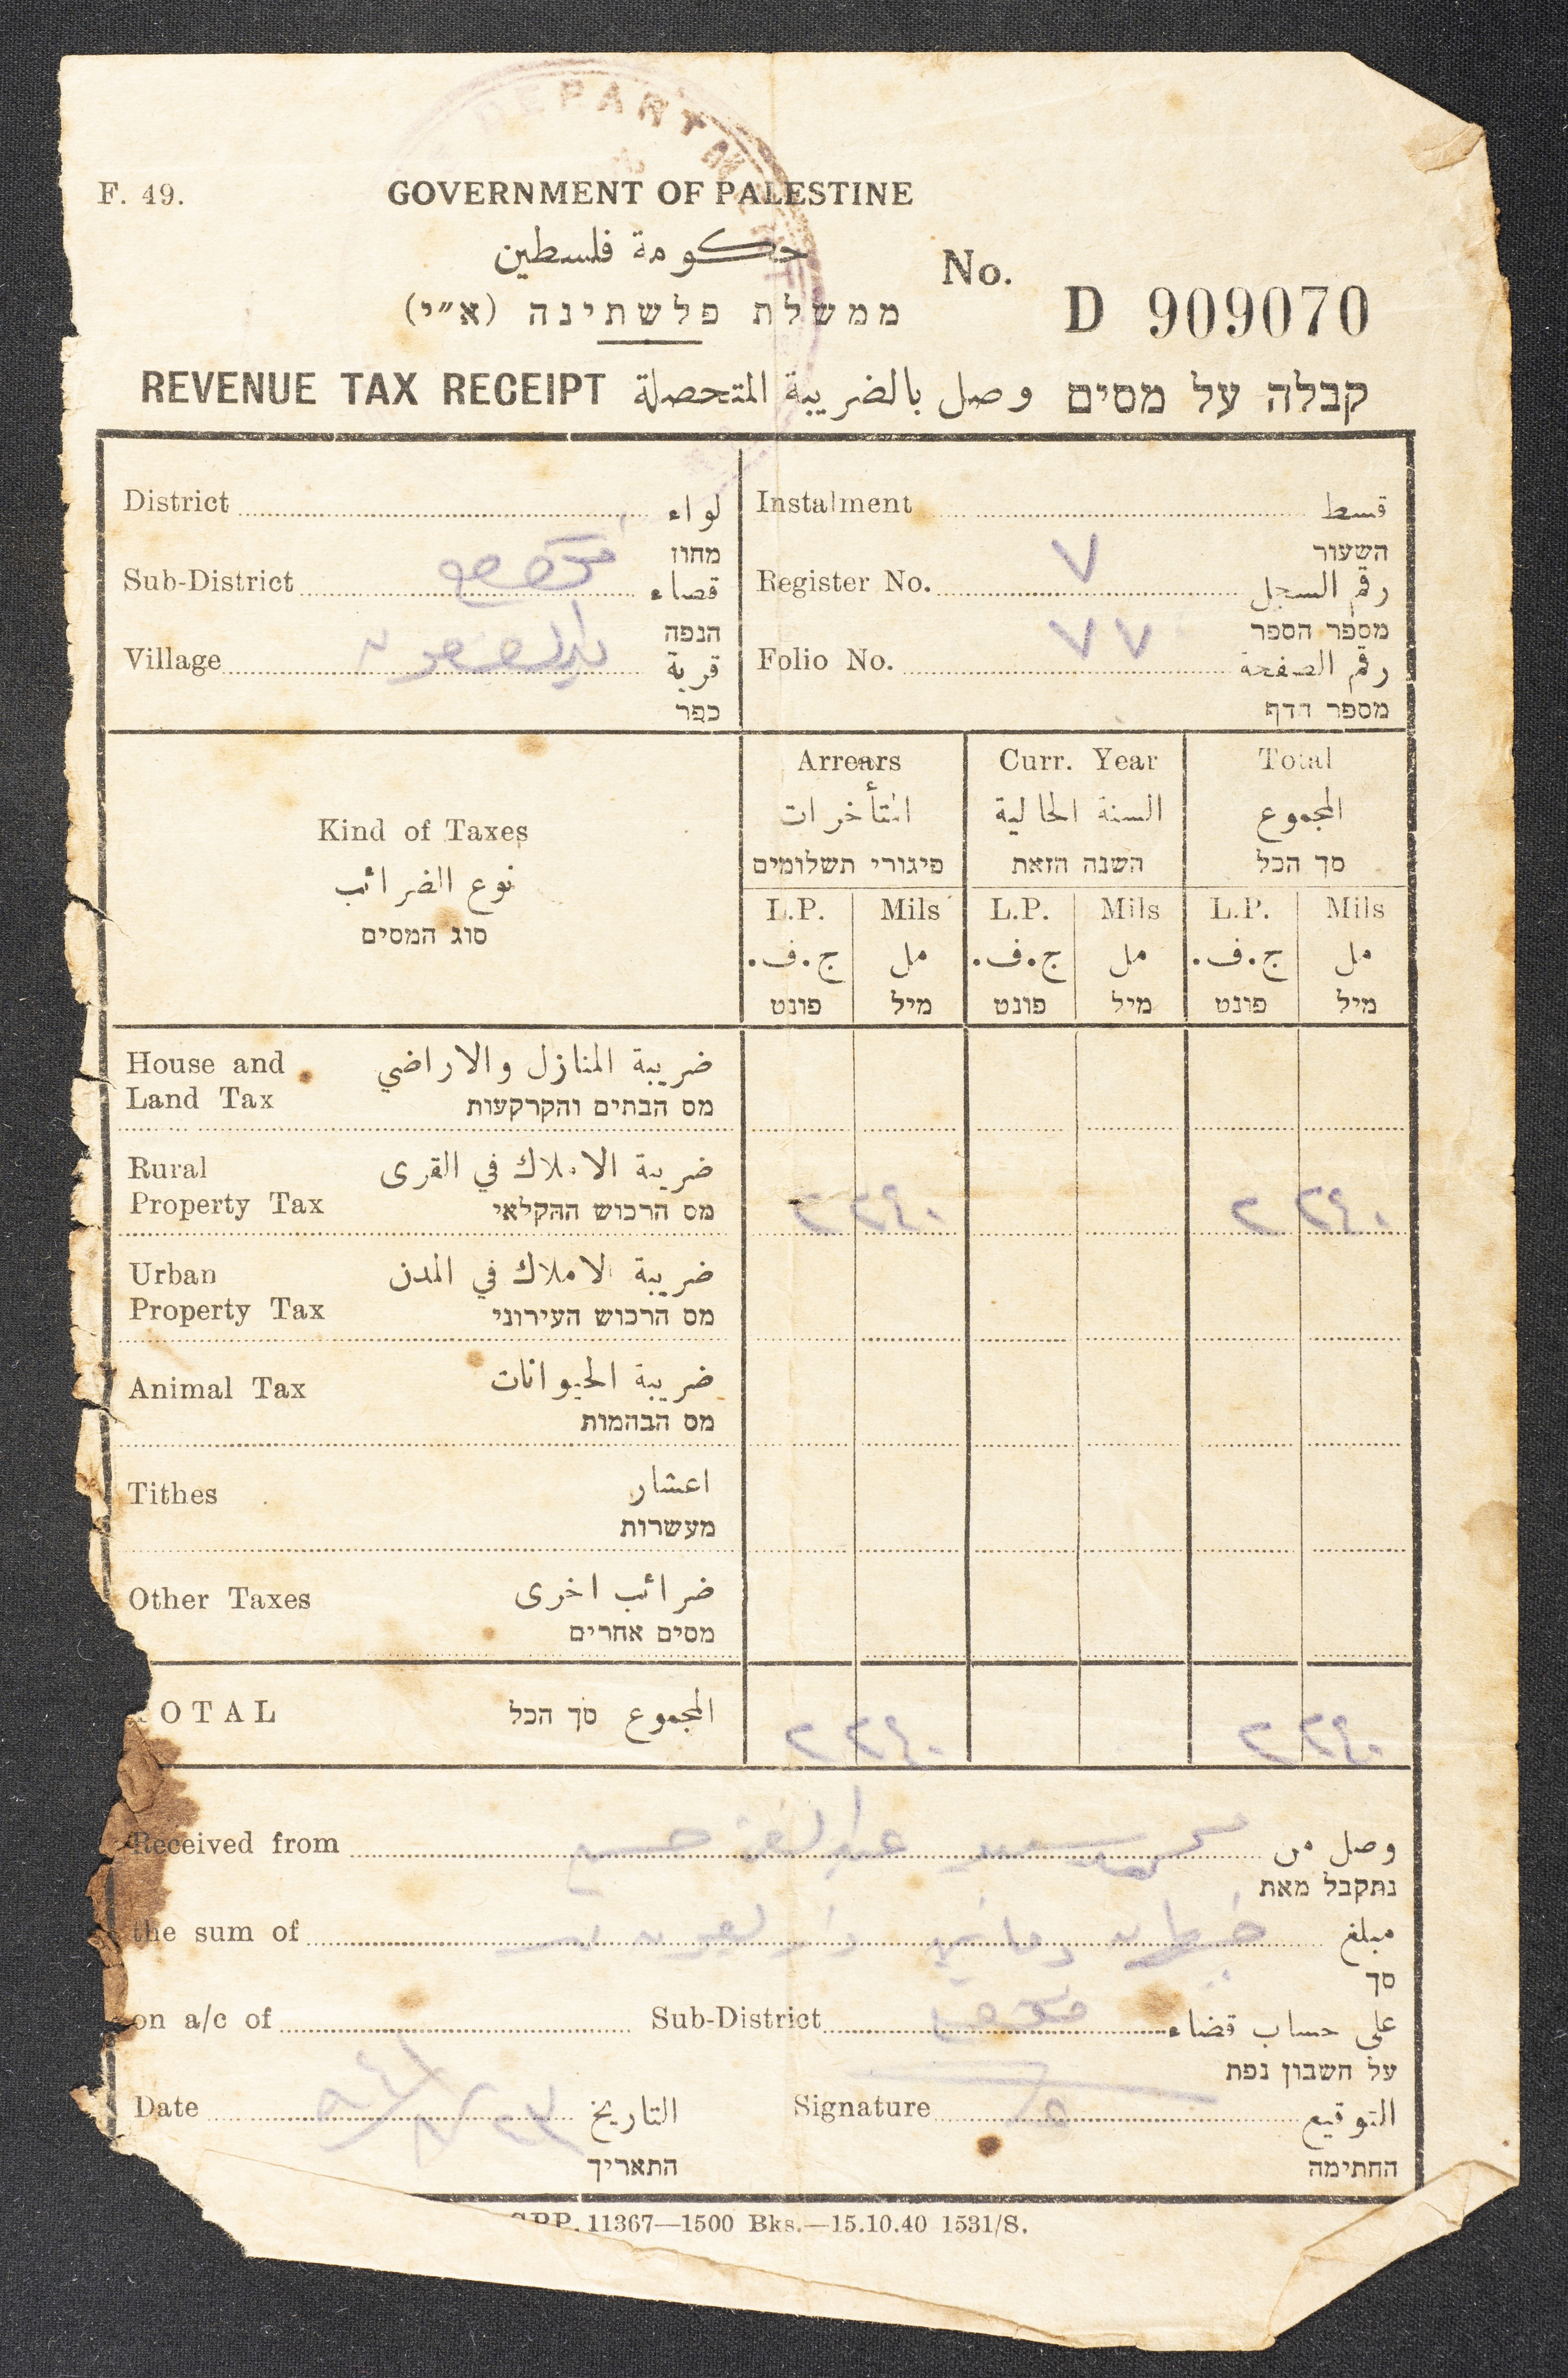 DEPARTM
F. 49.
GOVERNMENT OF PALESTINE
حكومة فلسطين
ממשלת פלשתינה (א״י)
No. D 909070
REVENUE TAX RECEIPT وصل بالضريبة المتحصلة קבלה על מסים
District لواء
מחוז
Sub-District قضاء
הנפה
Village قرية
כפר
Instalment قسط
השעור
Register No. ٧ رقم السجل
מספר הספר
Folio No. ٧٧ رقم الصفحة
מספר הדף
Kind of Taxes
نوع الضرائب
סוג המסים
Arrears Curr. Year Total
المتأخرات السنة الحالية المجموع
פיגורי תשלומים השנה הזאת סך הכל
L.P. Mils L.P. Mils L.P. Mils
ج.ف. مل ج.ف. مل ج.ف. مل
פונט מיל פונט מיל פונט מיל
House and Land Tax ضريبة المنازل والاراضي
מס הבתים והקרקעות
Rural Property Tax ضريبة الاملاك في القرى
מס הרכוש החקלאי
٢ ٢٤٠ ٢ ٢٤٠
Urban Property Tax ضريبة الاملاك في المدن
מס הרכוש העירוני
Animal Tax ضريبة الحيوانات
מס הבהמות
Tithes اعشار
מעשרות
Other Taxes ضرائب اخرى
מסים אחרים
TOTAL المجموع סך הכל
٢ ٢٤٠ ٢ ٢٤٠
Received from وصل من
נתקבל מאת
the sum of مبلغ
סך
on a/c of Sub-District على حساب قضاء
על חשבון נפת
Date التاريخ Signature التوقيع
התאריך החתימה
GPP. 11367—1500 Bks.—15.10.40 1531/S.